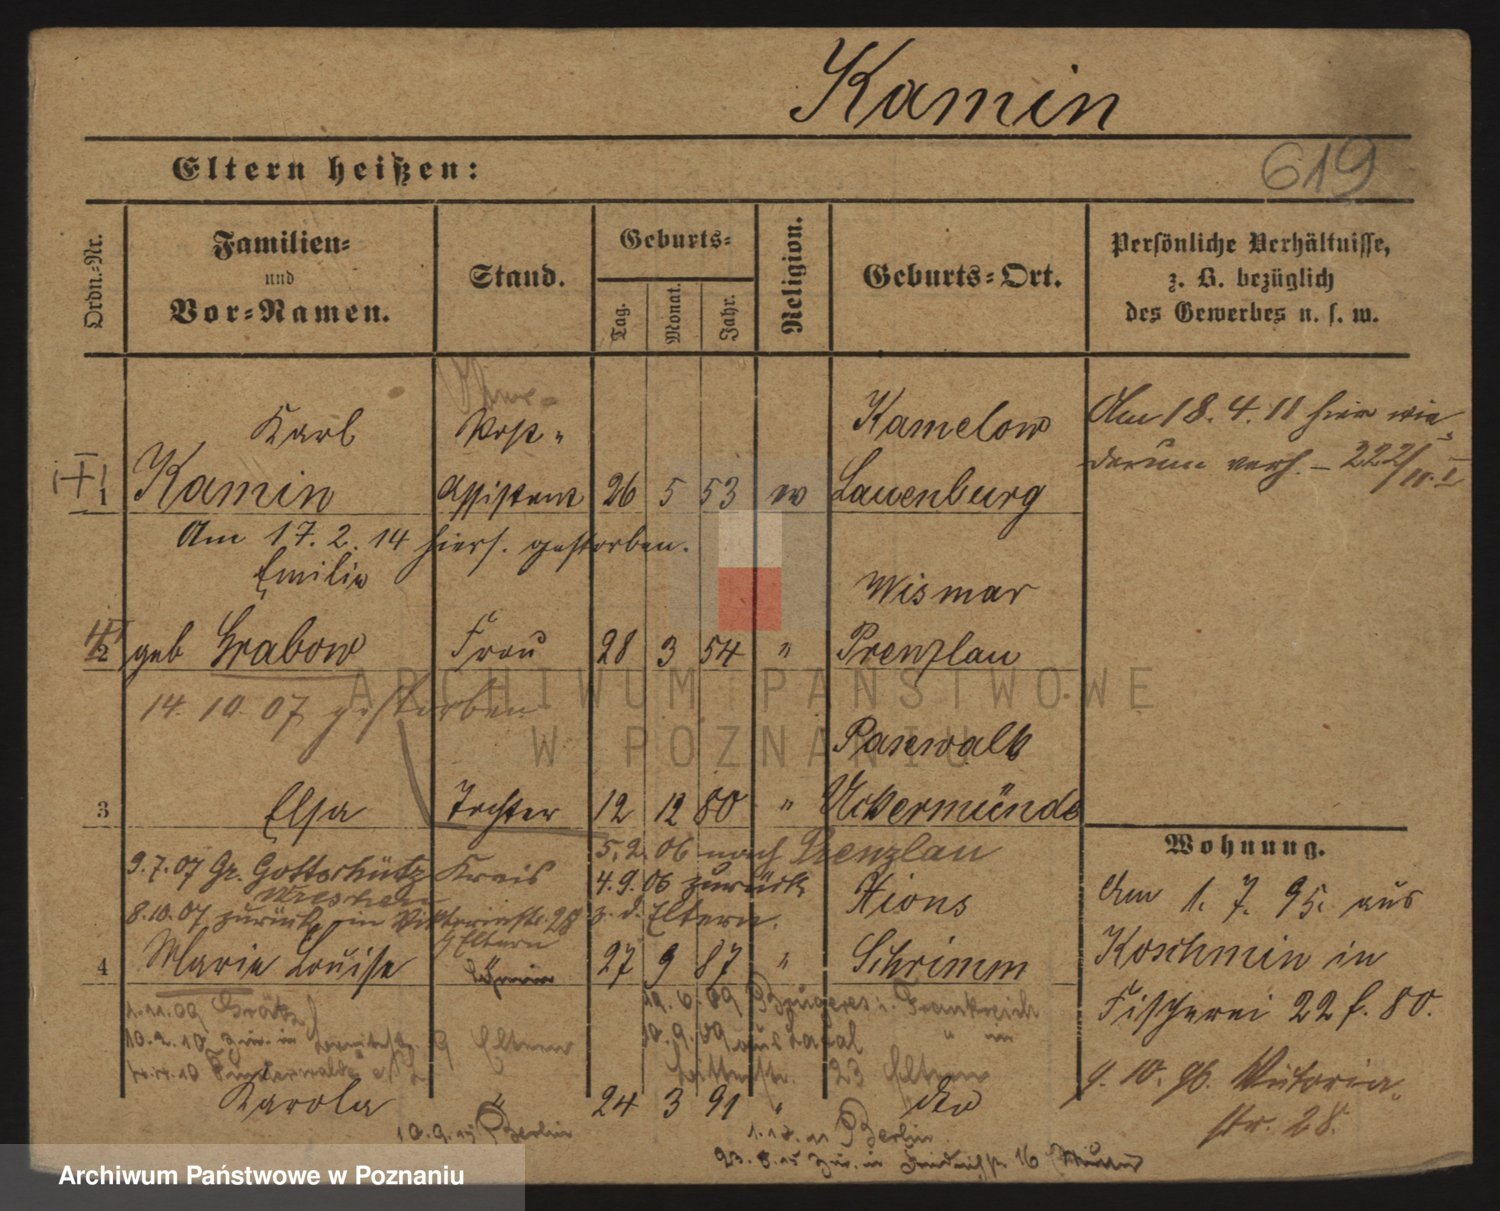 Kamin
619
Eltern heißen:
Ordn.-Nr.
Familien-
und
Vor-Namen.
Stand.
Geburts-
Tag.
Monat.
Jahr.
Religion.
Geburts-Ort.
Persönliche Verhältnisse,
z. B. bezüglich
des Gewerbes u. s. w.
Karl Post- Kamelow Am 18.4.11 hier wie-
derum verh. – 222/
1 Kamin Assistent 26 5 53 ev Lauenburg
Am 17. 2. 14 hiers. gestorben.
Emilie Wismar
2 geb Grabow Frau 28 3 54 " Prenzlau
14. 10. 07 gestorben
Pasewalk
3 Elsa Tochter 12 12 80 " Uckermünde
Wohnung.
5.2.06 nach Prenzlau
9.7.07 Gr. Gottschütz Kreis 4.9.06 zurück
Wreschen
8.10.07 zurück in Viktoriastr. 28 z. d. Eltern. Xions
Eltern
4 Marie Louise " 27 9 87 " Schrimm
Am 1. 7. 95. aus
Koschmin in
Fischerei 22 f. 80.
9. 10. 96. Viktoria-
str. 28.
1.11.09 Grätz 09 Frankreich
10.2.10 zur. in Eltern 10.9.09 aus
23 Eltern
Karola " 24 3 91 "
10.9.15 Berlin Berlin
23.8.15 zur. in 16
ARCHIWUM PAŃSTWOWE
W POZNANIU
Archiwum Państwowe w Poznaniu